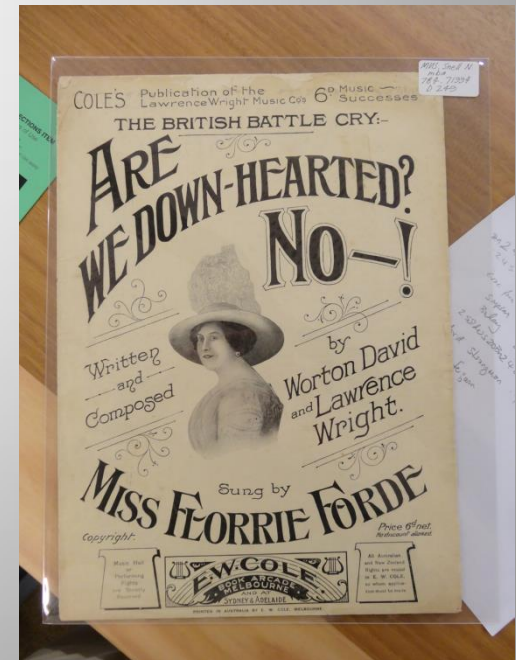 MUS Shed N
mba
784.71994
D 249
COLE'S Publication of the
Lawrence Wright Music Co's 6D Music
Successes
THE BRITISH BATTLE CRY:-
ARE
WE DOWN-HEARTED?
NO-!
Written
and
Composed
by
Worton David
and Lawrence
Wright.
Sung by
MISS FLORRIE FORDE
Copyright.
Price 6d net.
No discount allowed.
Music Hall
or
Performing
Rights
are Strictly
Reserved
E.W. COLE.
BOOK ARCADE
MELBOURNE
AND AT
SYDNEY & ADELAIDE
All Australian
and New Zealand
Rights
to
E. W. COLE,
PRINTED IN AUSTRALIA BY E. W. COLE MELBOURNE